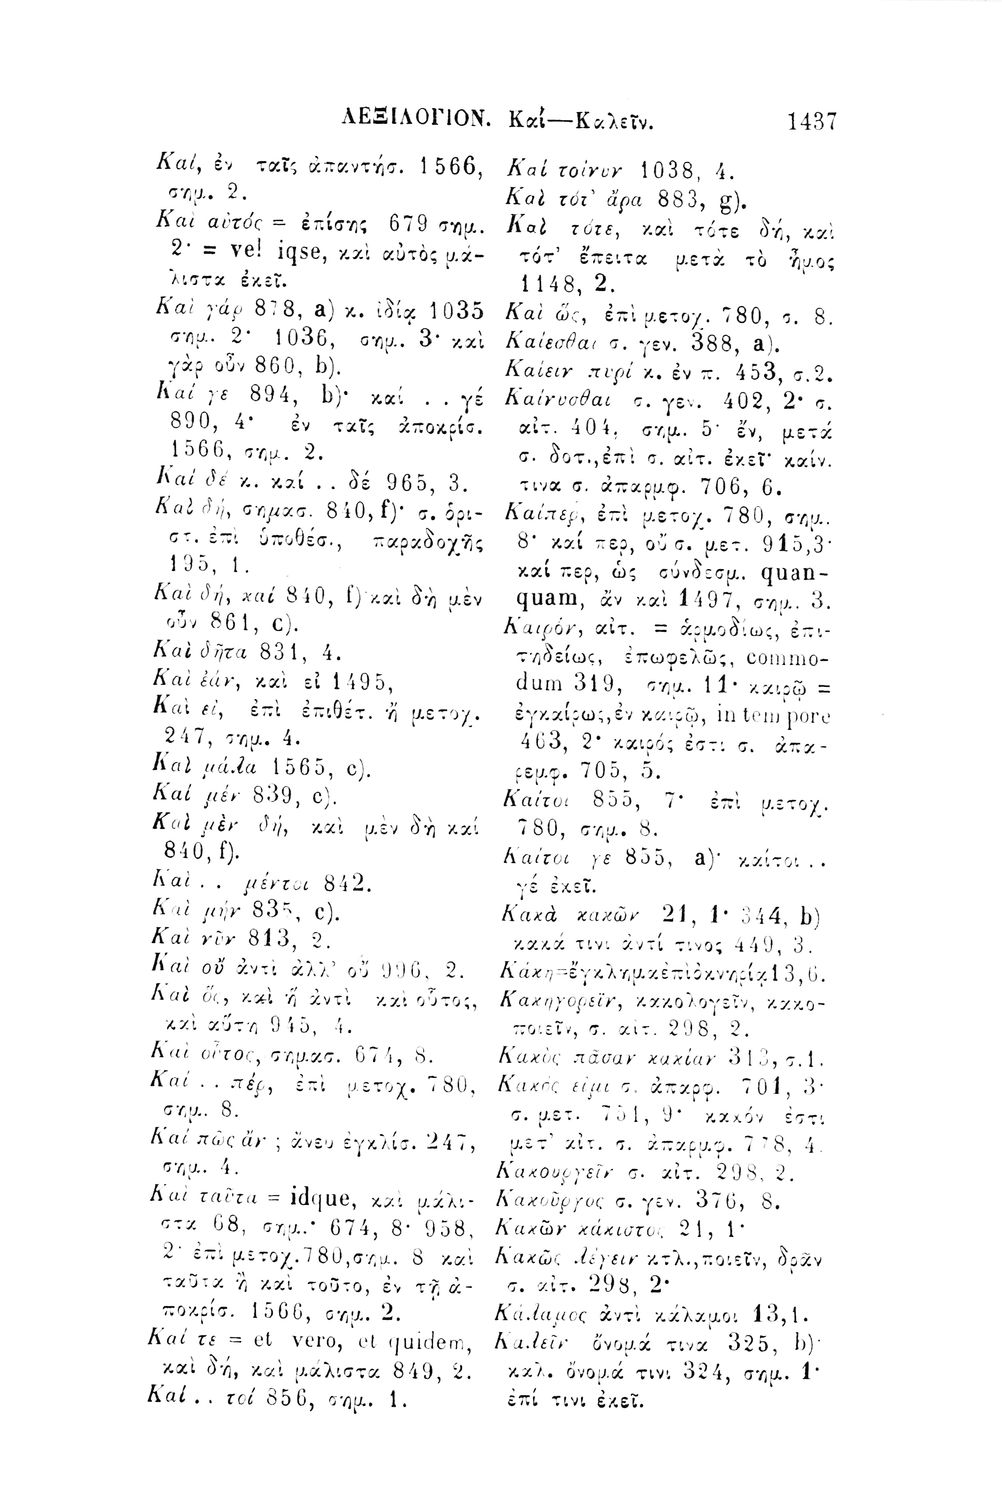 ΛΕΞΙΛΟΓΙΟΝ. Καί—Καλεῖν. 1437
Καί, ἐν ταῖς ἀπαντήσ. 1566,
σημ. 2.
Καὶ αὐτός = ἐπίσης 679 σημ.
2· = vel iqse, καὶ αὐτὸς μά-
λιστα ἐκεῖ.
Καὶ γάρ 878, a) κ. ἰδίᾳ 1035
σημ. 2· 1036, σημ. 3· καὶ
γὰρ οὖν 860, b).
Καί γε 894, b)· καί . . γέ
890, 4· ἐν ταῖς ἀποκρίσ.
1566, σημ. 2.
Καί δέ κ. καί . . δέ 965, 3.
Καὶ δή, σημασ. 840, f)· σ. ὁρι-
στ. ἐπὶ ὑποθέσ., παραδοχῆς
195, 1.
Καὶ δή, καί 840, f) καὶ δὴ μὲν
οὖν 861, c).
Καὶ δῆτα 831, 4.
Καὶ ἐάν, καὶ εἰ 1495,
Καὶ εἰ, ἐπὶ ἐπιθέτ. ἢ μετοχ.
247, σημ. 4.
Καὶ μάλα 1565, c).
Καί μέν 839, c).
Καὶ μὲν δή, καὶ μὲν δὴ καί
840, f).
Καὶ . . μέντοι 842.
Καὶ μήν 835, c).
Καὶ νῦν 813, 2.
Καὶ οὔ ἀντὶ ἀλλ' οὔ 996, 2.
Καὶ ὅς, καὶ ἥ ἀντὶ καὶ οὗτος,
καὶ αὕτη 945, 4.
Καὶ οὗτος, σημασ. 674, 8.
Καί . . πέρ, ἐπὶ μετοχ. 780,
σημ. 8.
Καί πῶς ἄν ; ἄνευ ἐγκλίσ. 247,
σημ. 4.
Καὶ ταῦτα = idque, καὶ μάλι-
στα 68, σημ.· 674, 8· 958,
2· ἐπὶ μετοχ. 780, σημ. 8 καὶ
ταῦτα ἢ καὶ τοῦτο, ἐν τῇ ἀ-
ποκρίσ. 1566, σημ. 2.
Καί τε = et vero, et quidem,
καὶ δή, καὶ μάλιστα 849, 2.
Καί . . τοί 856, σημ. 1.
Καί τοίνυν 1038, 4.
Καὶ τότ' ἄρα 883, g).
Καὶ τότε, καὶ τότε δή, καὶ
τότ' ἔπειτα μετὰ τὸ ἦμος
1148, 2.
Καὶ ὥς, ἐπὶ μετοχ. 780, σ. 8.
Καίεσθαι σ. γεν. 388, a).
Καίειν πυρί κ. ἐν π. 453, σ.2.
Καίνυσθαι σ. γεν. 402, 2· σ.
αἰτ. 404, σημ. 5· ἔν, μετά
σ. δοτ., ἐπὶ σ. αἰτ. ἐκεῖ· καίν.
τινα σ. ἀπαρμφ. 706, 6.
Καίπερ, ἐπὶ μετοχ. 780, σημ.
8· καί περ, οὔ σ. μετ. 915,3·
καί περ, ὡς σύνδεσμ. quan-
quam, ἄν καὶ 1497, σημ. 3.
Καιρόν, αἰτ. = ἁρμοδίως, ἐπι-
τηδείως, ἐπωφελῶς, commo-
dum 319, σημ. 11· καιρῷ =
ἐγκαίρως, ἐν καιρῷ, in tempore
463, 2· καιρός ἐστι σ. ἀπα-
ρεμφ. 705, 5.
Καίτοι 855, 7· ἐπὶ μετοχ.
780, σημ. 8.
Καίτοι γε 855, a)· καίτοι . .
γέ ἐκεῖ.
Κακὰ κακῶν 21, 1· 344, b)
κακά τινι ἀντί τινος 449, 3.
Κάκη=ἔγκλημα ἐπὶ ὀκνηρίᾳ 13,6.
Κακηγορεῖν, κακολογεῖν, κακο-
ποιεῖν, σ. αἰτ. 298, 2.
Κακὸς πᾶσαν κακίαν 313, σ.1.
Κακός εἰμι σ. ἀπαρφ. 701, 3·
σ. μετ. 751, 9· κακόν ἐστι
μετ' αἰτ. σ. ἀπαρμφ. 778, 4.
Κακουργεῖν σ. αἰτ. 298, 2.
Κακοῦργος σ. γεν. 376, 8.
Κακῶν κάκιστος 21, 1·
Κακῶς λέγειν κτλ., ποιεῖν, δρᾶν
σ. αἰτ. 298, 2·
Κάλαμος ἀντὶ κάλαμοι 13,1.
Καλεῖν ὄνομά τινα 325, b)·
καλ. ὄνομά τινι 324, σημ. 1·
ἐπί τινι ἐκεῖ.